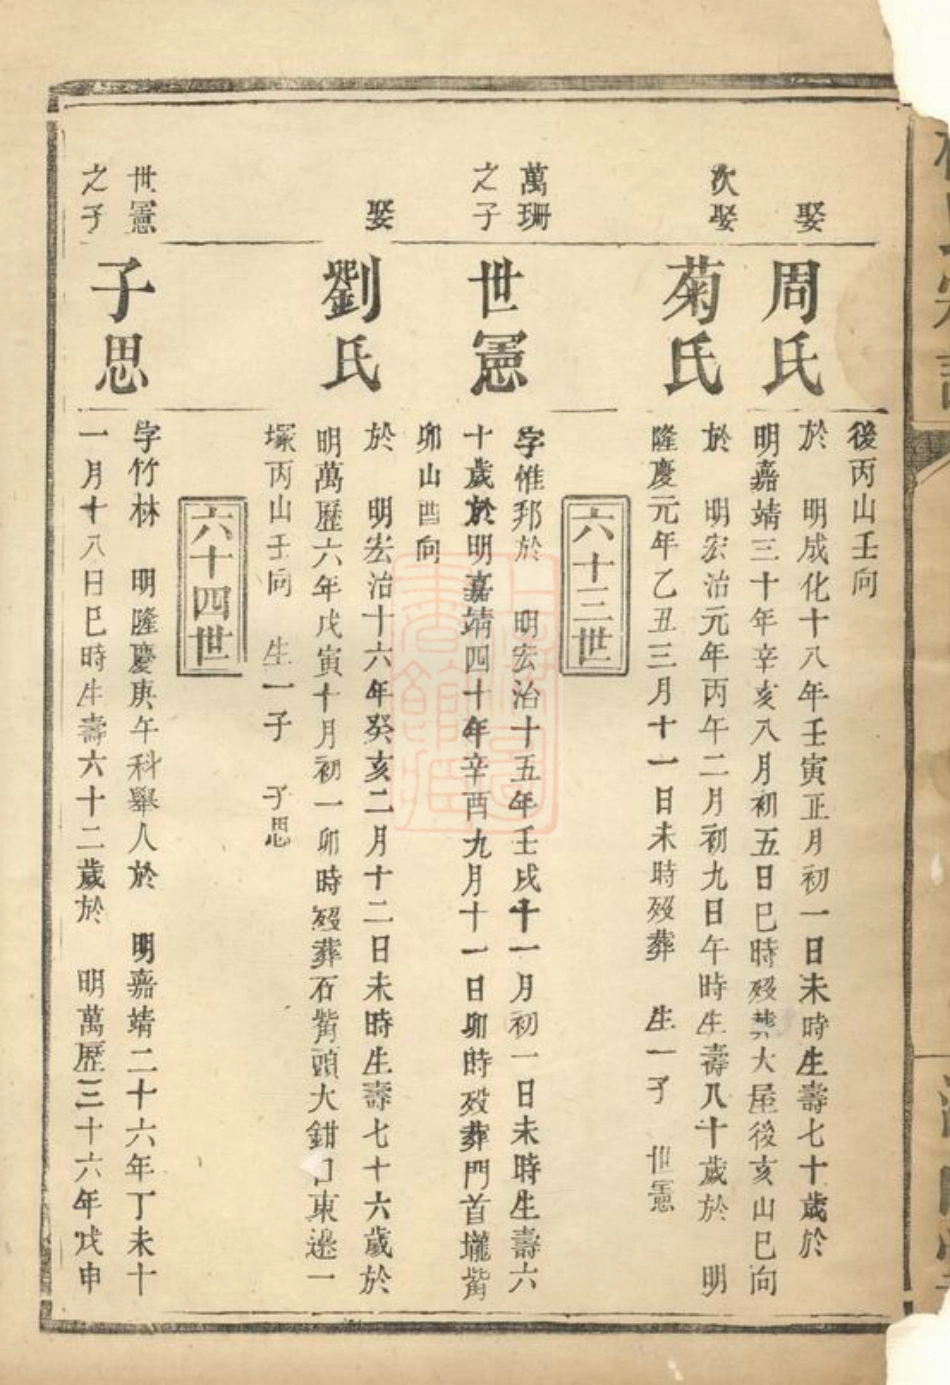 後丙山壬向
娶
周氏
於　明成化十八年壬寅正月初一日未時生壽七十歲於
明嘉靖三十年辛亥八月初五日巳時歿葬大屋後亥山巳向
次娶
菊氏
於　明宏治元年丙午二月初九日午時生壽八十歲於　明
隆慶元年乙丑三月十一日未時歿葬　生一子　世憲
六十三世
萬珊
之子
世憲
字惟邦於　明宏治十五年壬戌十一月初一日未時生壽六
十歲於明嘉靖四十年辛酉九月十一日卯時歿葬門首壠觜
卯山酉向
娶
劉氏
於　明宏治十六年癸亥二月十二日未時生壽七十六歲於
明萬歷六年戊寅十月初一卯時歿葬石觜頭大鉗口東邊一
塚丙山壬向　生一子　子思
六十四世
世憲
之子
子思
字竹林　明隆慶庚午科舉人於　明嘉靖二十六年丁未十
一月十八日巳時生壽六十二歲於　明萬歷三十六年戊申